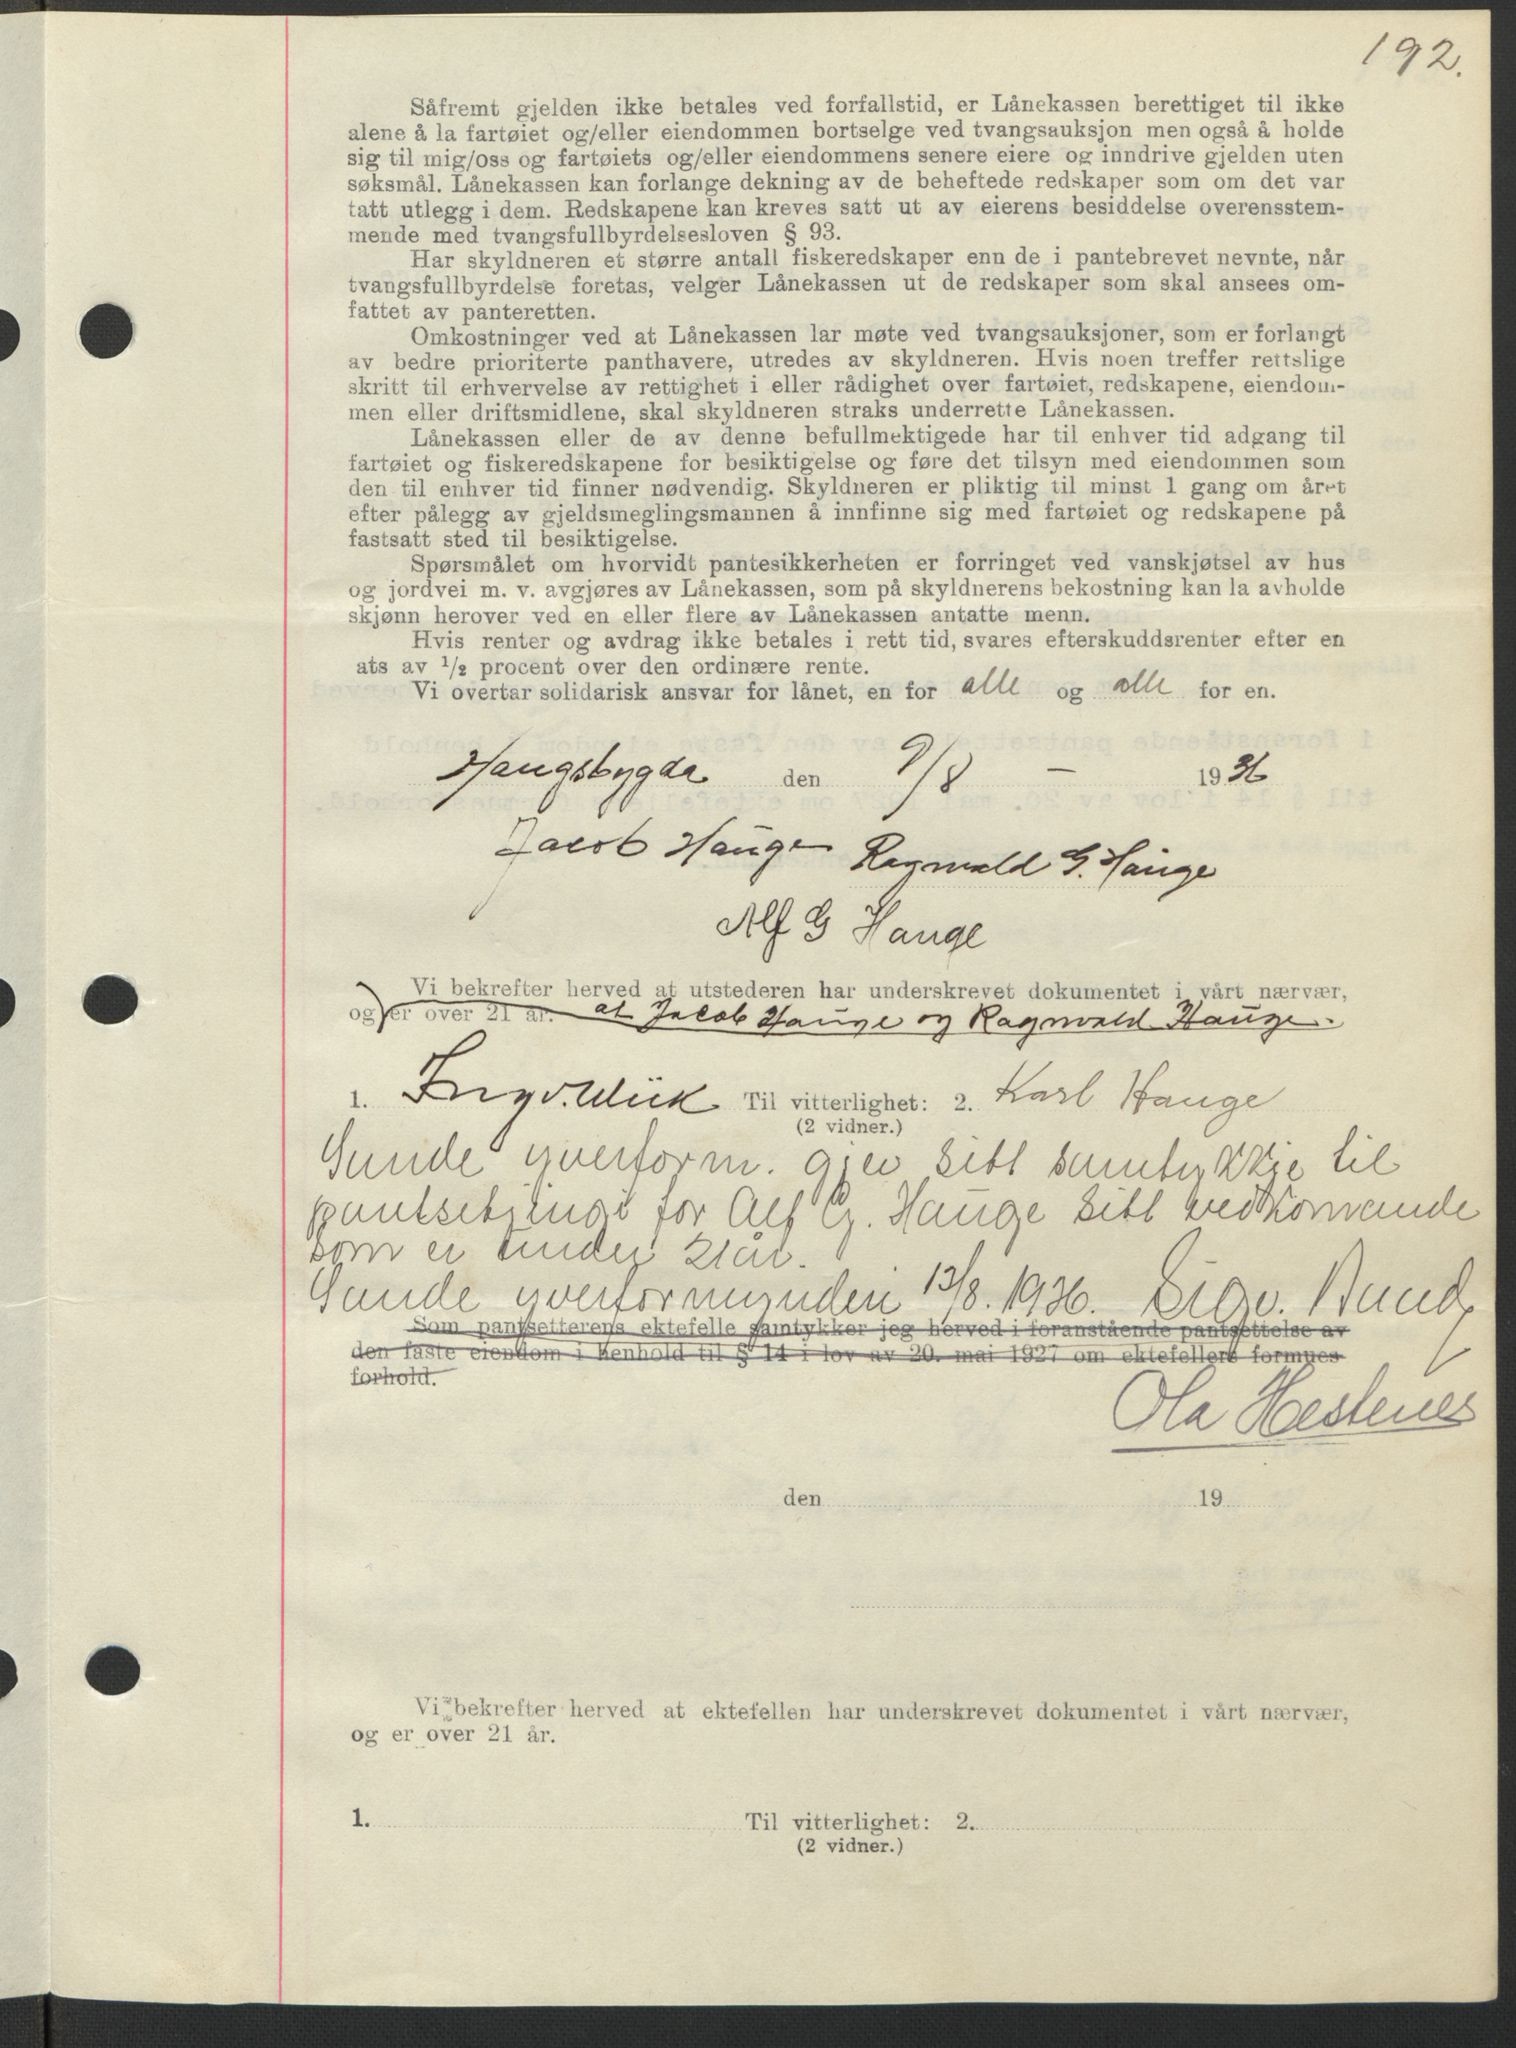 192.
Såfremt gjelden ikke betales ved forfallstid, er Lånekassen berettiget til ikke
alene å la fartøiet og/eller eiendommen bortselge ved tvangsauksjon men også å holde
sig til mig/oss og fartøiets og/eller eiendommens senere eiere og inndrive gjelden uten
søksmål. Lånekassen kan forlange dekning av de beheftede redskaper som om det var
tatt utlegg i dem. Redskapene kan kreves satt ut av eierens besiddelse overensstem-
mende med tvangsfullbyrdelsesloven § 93.
Har skyldneren et større antall fiskeredskaper enn de i pantebrevet nevnte, når
tvangsfullbyrdelse foretas, velger Lånekassen ut de redskaper som skal ansees om-
fattet av panteretten.
Omkostninger ved at Lånekassen lar møte ved tvangsauksjoner, som er forlangt
av bedre prioriterte panthavere, utredes av skyldneren. Hvis noen treffer rettslige
skritt til erhvervelse av rettighet i eller rådighet over fartøiet, redskapene, eiendom-
men eller driftsmidlene, skal skyldneren straks underrette Lånekassen.
Lånekassen eller de av denne befullmektigede har til enhver tid adgang til
fartøiet og fiskeredskapene for besiktigelse og føre det tilsyn med eiendommen som
den til enhver tid finner nødvendig. Skyldneren er pliktig til minst 1 gang om året
efter pålegg av gjeldsmeglingsmannen å innfinne sig med fartøiet og redskapene på
fastsatt sted til besiktigelse.
Spørsmålet om hvorvidt pantesikkerheten er forringet ved vanskjøtsel av hus
og jordvei m. v. avgjøres av Lånekassen, som på skyldnerens bekostning kan la avholde
skjønn herover ved en eller flere av Lånekassen antatte menn.
Hvis renter og avdrag ikke betales i rett tid, svares efterskuddsrenter efter en
ats av 1/2 procent over den ordinære rente.
Vi overtar solidarisk ansvar for lånet, en for alle og alle for en.
Haugsbygda den 9/8 - 1936
Jacob Hauge Ragnvald G. Hauge
Alf G Hauge
Vi bekrefter herved at utstederen har underskrevet dokumentet i vårt nærvær,
og er over 21 år. at Jacob Hauge og Ragnvald Hauge.
1. Ingv. Wiik Til vitterlighet: 2. Karl Hauge
(2 vidner.)
Sande yverform. gjev sitt samtykkje til
pantsetjingi for Alf G. Hauge sitt vedkomande
som er under 21 år.
Sande yverformynderi 13/8. 1936. Sigv. Aund
Som pantsetterens ektefelle samtykker jeg herved i foranstående pantsettelse av
den faste eiendom i henhold til § 14 i lov av 20. mai 1927 om ektefellers formues
forhold.
Ola Hestenes
den 19
Vi bekrefter herved at ektefellen har underskrevet dokumentet i vårt nærvær,
og er over 21 år.
1. Til vitterlighet: 2.
(2 vidner.)